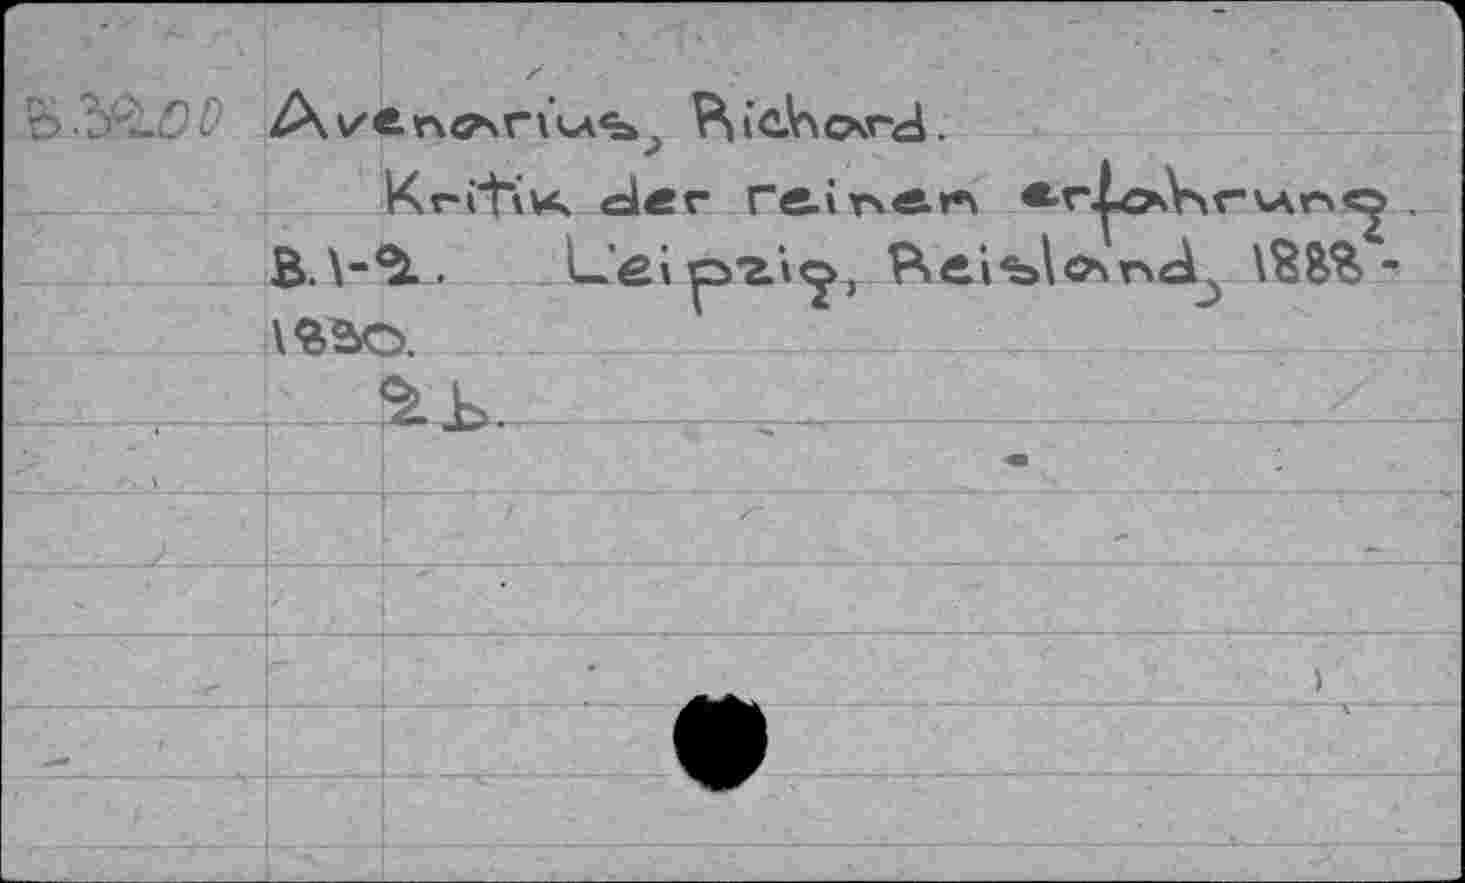 Avenarius, Richard.
Kritik der reinen erfahrung.
B.1-2. Leipzig, Reisland, 1888-
1890.
2 b.